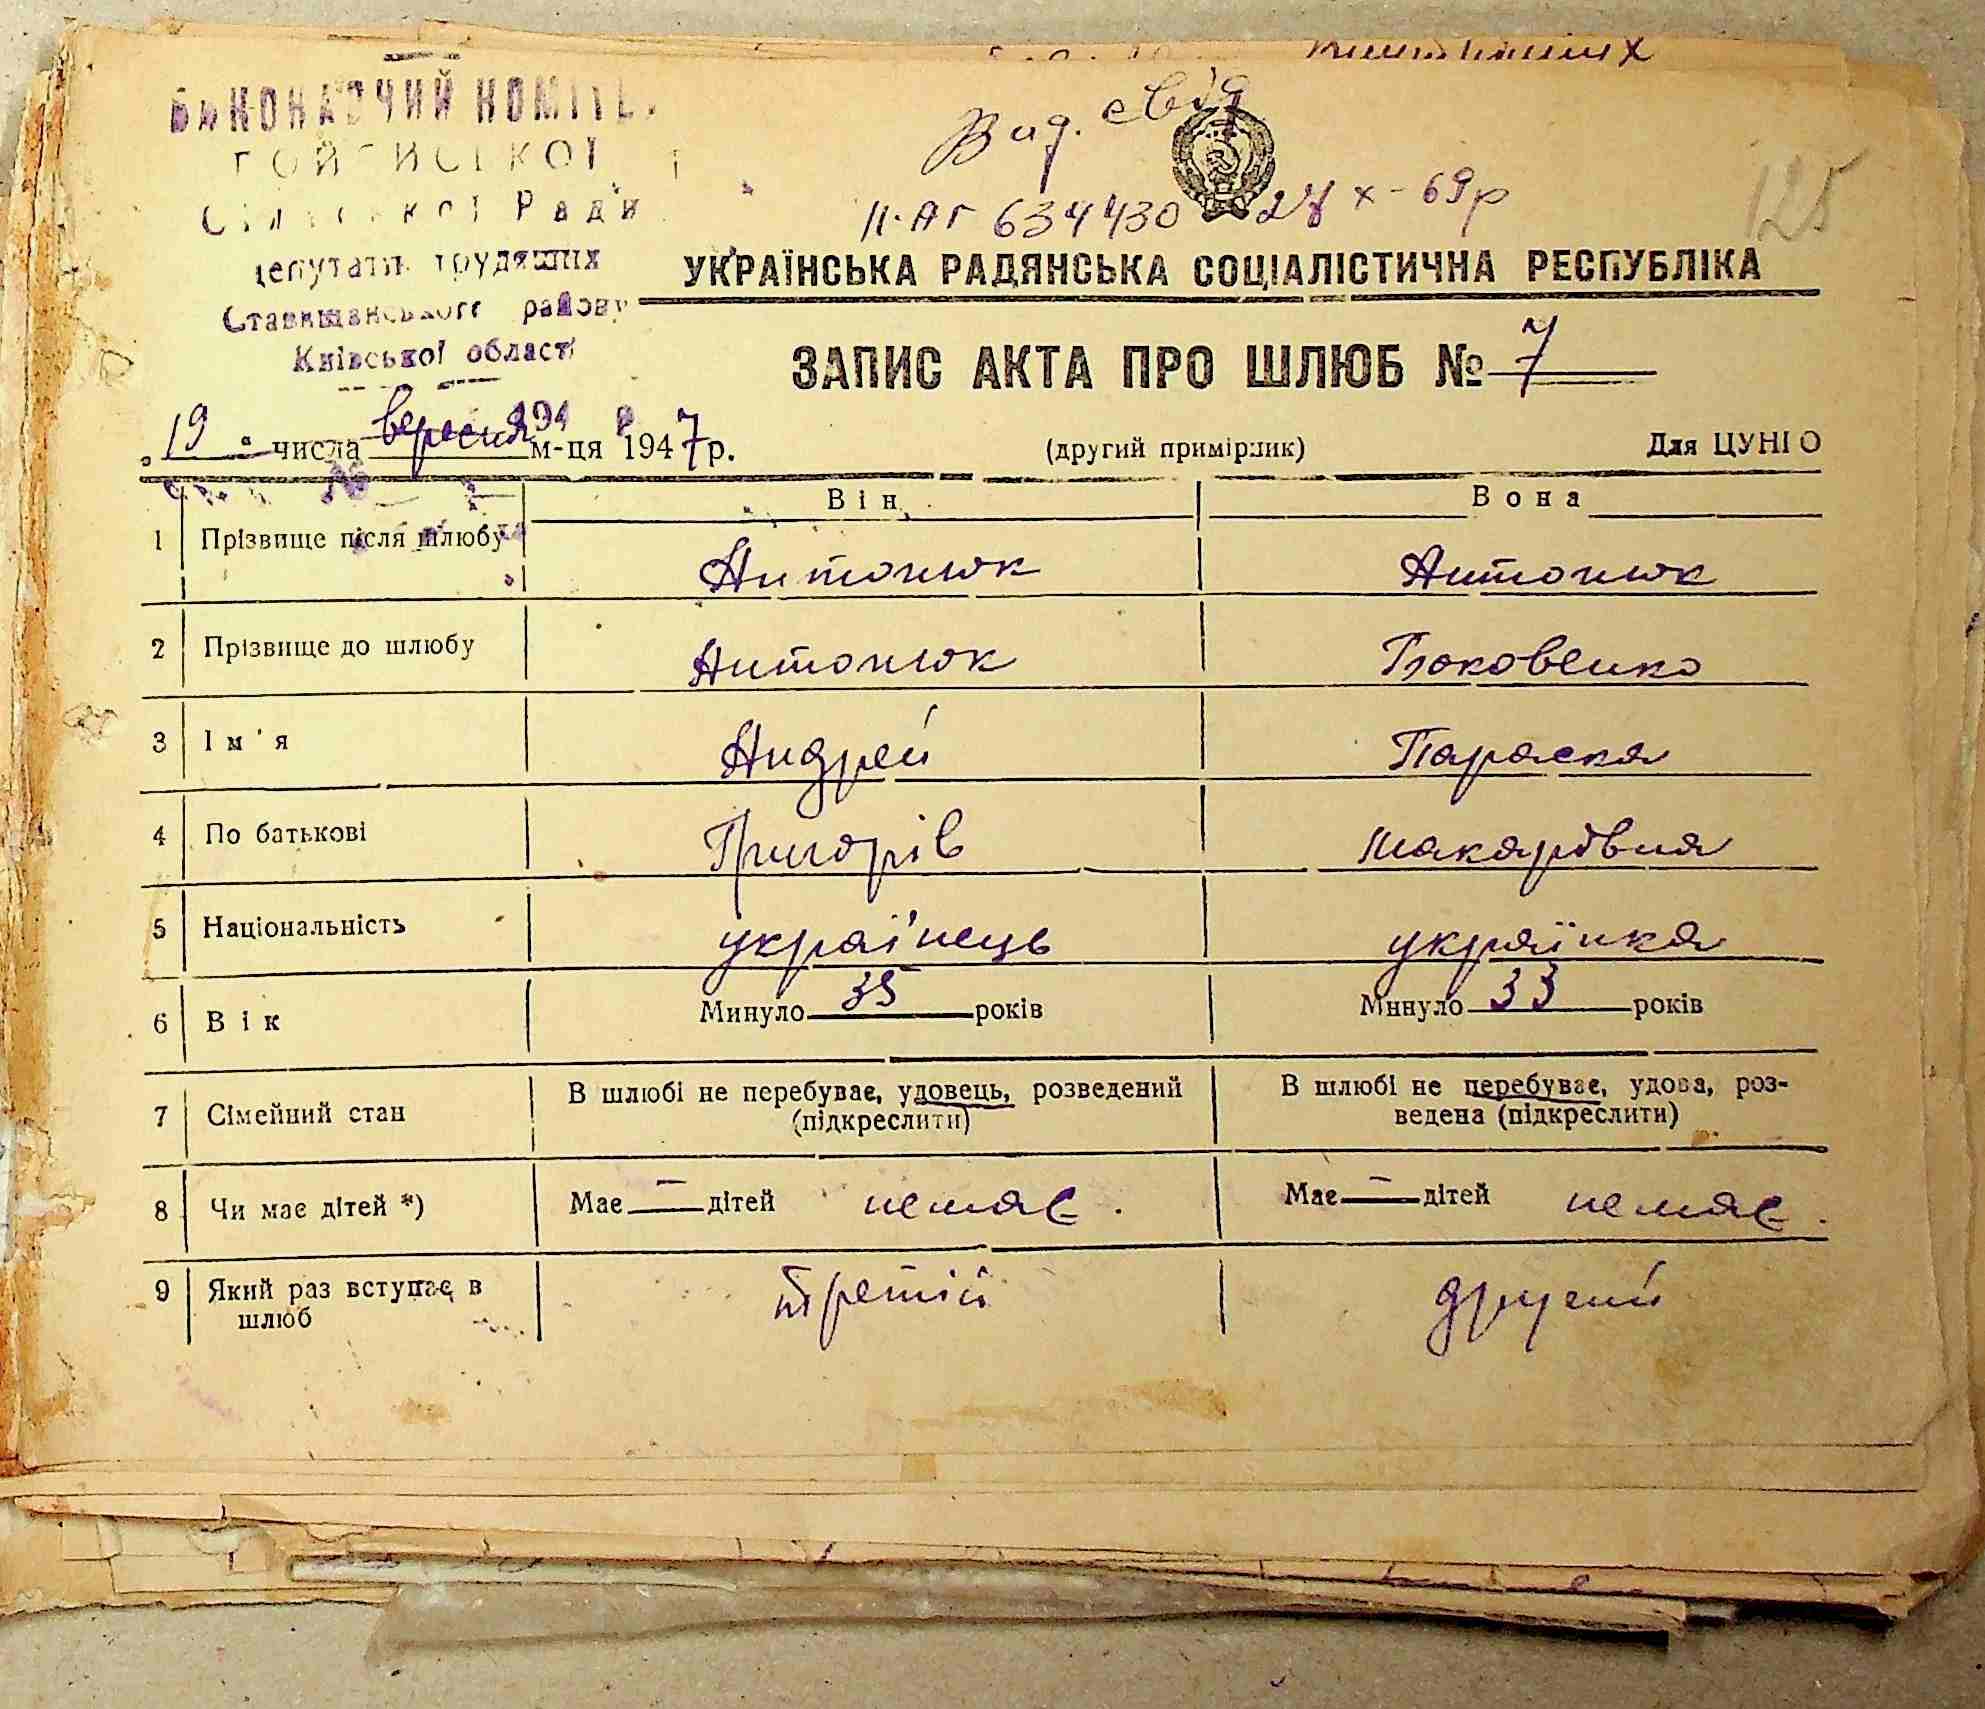 Вид. свід
ІІ-АГ 634430 27 х-69р
125
ВИКОНАВЧИЙ КОМІТЕ
Сільської Ради
депутатів трудящих
Ставищанського району
Київської області
УКРАЇНСЬКА РАДЯНСЬКА СОЦІАЛІСТИЧНА РЕСПУБЛІКА
ЗАПИС АКТА ПРО ШЛЮБ № 7
„19“ числа вересня м-ця 1947 р. (другий примірник) Для ЦУНГО
Він Вона
1 Прізвище після шлюбу Антонюк Антонюк
2 Прізвище до шлюбу Антонюк
3 Ім'я Андрей Параска
4 По батькові Григорів Макарівна
5 Національність українець українка
6 Вік Минуло 35 років Минуло 33 років
7 Сімейний стан В шлюбі не перебуває, удовець, розведений В шлюбі не перебуває, удова, роз-
(підкреслити) ведена (підкреслити)
8 Чи має дітей *) Має — дітей немає. Має — дітей немає.
9 Який раз вступає в третій другий
шлюб